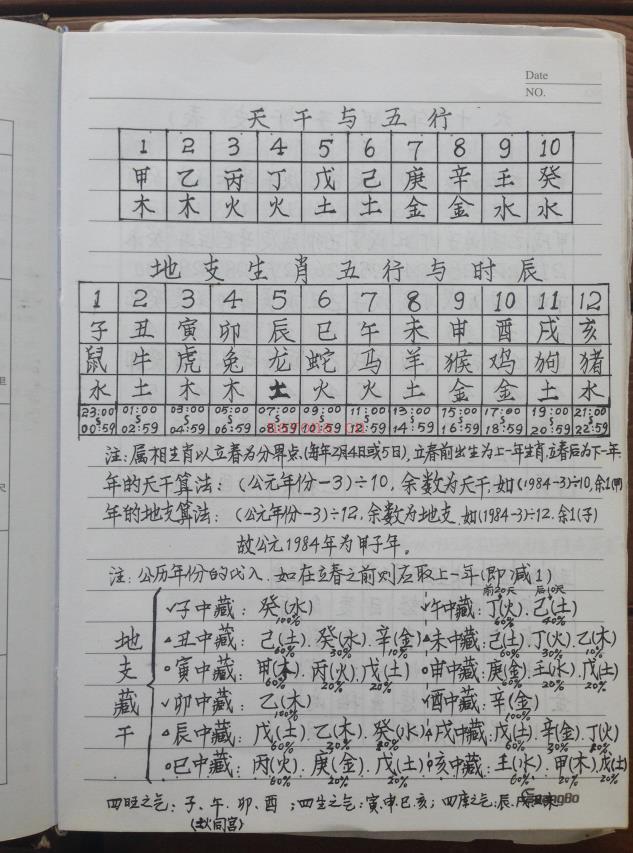 Date
NO.
天干与五行
1 2 3 4 5 6 7 8 9 10
甲 乙 丙 丁 戊 己 庚 辛 壬 癸
木 木 火 火 土 土 金 金 水 水
地支生肖五行与时辰
1 2 3 4 5 6 7 8 9 10 11 12
子 丑 寅 卯 辰 巳 午 未 申 酉 戌 亥
鼠 牛 虎 兔 龙 蛇 马 羊 猴 鸡 狗 猪
水 土 木 木 土 火 火 土 金 金 土 水
23:00 01:00 03:00 05:00 07:00 09:00 11:00 13:00 15:00 17:00 19:00 21:00
00:59 02:59 04:59 06:59 08:59 10:59 12:59 14:59 16:59 18:59 20:59 22:59
注:属相生肖以立春为分界点,(每年2月4日或5日),立春前出生为上一年生肖,立春后为下一年.
年的天干算法:(公元年份-3)÷10,余数为天干,如(1984-3)÷10,余1(甲)
年的地支算法:(公元年份-3)÷12,余数为地支,如(1984-3)÷12.余1(子)
故公元1984年为甲子年。
注:公历年份的代入.如在立春之前则应取上一年(即减1)
地支藏干
子中藏:癸(水) 100%
午中藏:丁(火) 60% 前20天.己(土) 40% 后10天
丑中藏:己(土) 60%.癸(水) 30%.辛(金) 10%
未中藏:己(土) 60%.丁(火) 30%.乙(木) 10%
寅中藏:甲(木) 60%.丙(火) 20%.戊(土) 20%
申中藏:庚(金) 60%.壬(水) 20%.戊(土) 20%
卯中藏:乙(木) 100%
酉中藏:辛(金) 100%
辰中藏:戊(土) 60%.乙(木) 30%.癸(水)
戌中藏:戊(土) 60%.辛(金) 30%.丁(火)
巳中藏:丙(火) 60%.庚(金) 20%.戊(土) 20%
亥中藏:壬(水) 60%.甲(木) 20%.戊(土) 20%
四旺之气:子、午.卯.酉;四生之气:寅.申.巳.亥;四库之气:辰.戌.丑.未
(土火同宫)